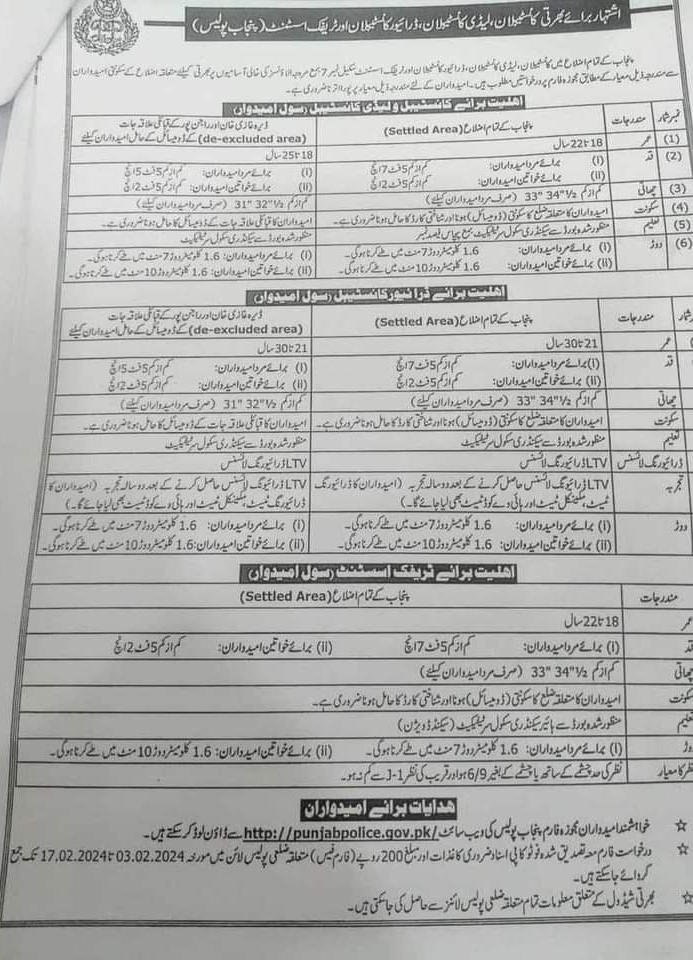 اشتہار برائے بھرتی کانسٹیبلان، لیڈی کانسٹیبلان، ڈرائیور کانسٹیبلان اور ٹریفک اسسٹنٹ (پنجاب پولیس)
پنجاب کے تمام اضلاع میں کانسٹیبلان، لیڈی کانسٹیبلان، ڈرائیور کانسٹیبلان اور ٹریفک اسسٹنٹ سکیل نمبر 7 بمع مروجہ الاؤنسز کی خالی آسامیوں پر بھرتی کیلئے متعلقہ اضلاع کے سکونتی امیدواران
سے مندرجہ ذیل معیار کے مطابق مجوزہ فارم پر درخواستیں مطلوب ہیں۔ امیدواران کے لئے مندرجہ ذیل معیار پر پورا اترنا ضروری ہے۔
اہلیت برائے کانسٹیبل و لیڈی کانسٹیبل (سول امیدوار)
نمبر شمار مندرجات پنجاب کے تمام اضلاع (Settled Area) ڈیرہ غازی خان اور راجن پور کے قبائلی علاقہ جات
(de-excluded area) کے ڈومیسائل کے حامل امیدواران کیلئے
(1) عمر 18 تا 22 سال 18 تا 25 سال
(2) قد (i) برائے مرد امیدواران: کم از کم 5 فٹ 7 انچ (i) برائے مرد امیدواران: کم از کم 5 فٹ 5 انچ
(ii) برائے خواتین امیدواران: کم از کم 5 فٹ 2 انچ (ii) برائے خواتین امیدواران: کم از کم 5 فٹ 2 انچ
(3) چھاتی کم از کم 33" 34½" (صرف مرد امیدواران کیلئے) کم از کم 31" 32½" (صرف مرد امیدواران کیلئے)
(4) سکونت امیدواران کا متعلقہ ضلع کا سکونتی (ڈومیسائل) ہونا اور شناختی کارڈ کا حامل ہونا ضروری ہے۔ امیدواران کا قبائلی علاقہ جات کے ڈومیسائل کا حامل ہونا ضروری ہے۔
(5) تعلیم منظور شدہ بورڈ سے سیکنڈری سکول سرٹیفکیٹ بمع پچاس فیصد نمبر منظور شدہ بورڈ سے سیکنڈری سکول سرٹیفکیٹ
(6) دوڑ (i) برائے مرد امیدواران: 1.6 کلومیٹر دوڑ 7 منٹ میں طے کرنا ہوگی۔ (i) برائے مرد امیدواران: 1.6 کلومیٹر دوڑ 7 منٹ میں طے کرنا ہوگی۔
(ii) برائے خواتین امیدواران: 1.6 کلومیٹر دوڑ 10 منٹ میں طے کرنا ہوگی۔ (ii) برائے خواتین امیدواران: 1.6 کلومیٹر دوڑ 10 منٹ میں طے کرنا ہوگی۔
اہلیت برائے ڈرائیور کانسٹیبل (سول امیدوار)
شمار مندرجات پنجاب کے تمام اضلاع (Settled Area) ڈیرہ غازی خان اور راجن پور کے قبائلی علاقہ جات
(de-excluded area) کے ڈومیسائل کے حامل امیدواران کیلئے
عمر 21 تا 30 سال 21 تا 30 سال
قد (i) برائے مرد امیدواران: کم از کم 5 فٹ 7 انچ (i) برائے مرد امیدواران: کم از کم 5 فٹ 5 انچ
(ii) برائے خواتین امیدواران: کم از کم 5 فٹ 2 انچ (ii) برائے خواتین امیدواران: کم از کم 5 فٹ 2 انچ
چھاتی کم از کم 33" 34½" (صرف مرد امیدواران کیلئے) کم از کم 31" 32½" (صرف مرد امیدواران کیلئے)
سکونت امیدواران کا متعلقہ ضلع کا سکونتی (ڈومیسائل) ہونا اور شناختی کارڈ کا حامل ہونا ضروری ہے۔ امیدواران کا قبائلی علاقہ جات کے ڈومیسائل کا حامل ہونا ضروری ہے۔
تعلیم منظور شدہ بورڈ سے سیکنڈری سکول سرٹیفکیٹ منظور شدہ بورڈ سے سیکنڈری سکول سرٹیفکیٹ
ڈرائیورنگ لائسنس LTV ڈرائیورنگ لائسنس LTV ڈرائیورنگ لائسنس
تجربہ LTV ڈرائیورنگ لائسنس حاصل کرنے کے بعد دو سالہ تجربہ (امیدواران کا ڈرائیورنگ LTV ڈرائیورنگ لائسنس حاصل کرنے کے بعد دو سالہ تجربہ (امیدواران کا
ٹیسٹ، مکینیکل ٹیسٹ اور ہائی وے کوڈ ٹیسٹ بھی لیا جائے گا) ڈرائیورنگ ٹیسٹ، مکینیکل ٹیسٹ اور ہائی وے کوڈ ٹیسٹ بھی لیا جائے گا۔)
دوڑ (i) برائے مرد امیدواران: 1.6 کلومیٹر دوڑ 7 منٹ میں طے کرنا ہوگی۔ (i) برائے مرد امیدواران: 1.6 کلومیٹر دوڑ 7 منٹ میں طے کرنا ہوگی۔
(ii) برائے خواتین امیدواران: 1.6 کلومیٹر دوڑ 10 منٹ میں طے کرنا ہوگی۔ (ii) برائے خواتین امیدواران: 1.6 کلومیٹر دوڑ 10 منٹ میں طے کرنا ہوگی۔
اہلیت برائے ٹریفک اسسٹنٹ (سول امیدوار)
مندرجات پنجاب کے تمام اضلاع (Settled Area)
عمر 18 تا 22 سال
قد (i) برائے مرد امیدواران: کم از کم 5 فٹ 7 انچ (ii) برائے خواتین امیدواران: کم از کم 5 فٹ 2 انچ
چھاتی کم از کم 33" 34½" (صرف مرد امیدواران کیلئے)
سکونت امیدواران کا متعلقہ ضلع کا سکونتی (ڈومیسائل) ہونا اور شناختی کارڈ کا حامل ہونا ضروری ہے۔
تعلیم منظور شدہ بورڈ سے ہائیر سیکنڈری سکول سرٹیفکیٹ (سیکنڈ ڈویژن)
دوڑ (i) برائے مرد امیدواران: 1.6 کلومیٹر دوڑ 7 منٹ میں طے کرنا ہوگی۔ (ii) برائے خواتین امیدواران: 1.6 کلومیٹر دوڑ 10 منٹ میں طے کرنا ہوگی۔
نظر کا معیار نظر کی حد چشمے کے ساتھ یا چشمے کے بغیر 6/9 ہو اور قریب کی نظر J-1 سے کم نہ ہو۔
ہدایات برائے امیدواران
☆ خواہشمند امیدواران مجوزہ فارم پنجاب پولیس کی ویب سائٹ http://punjabpolice.gov.pk/ سے ڈاؤن لوڈ کر سکتے ہیں۔
☆ درخواست فارم معہ تصدیق شدہ فوٹو کاپی اسناد ضروری کاغذات اور مبلغ 200 روپے (فارم فیس) متعلقہ ضلعی پولیس لائن میں مورخہ 03.02.2024 تا 17.02.2024 تک جمع
کروائے جا سکتے ہیں۔
☆ بھرتی شیڈول کے متعلق معلومات تمام متعلقہ ضلعی پولیس لائنز سے حاصل کی جا سکتی ہیں۔